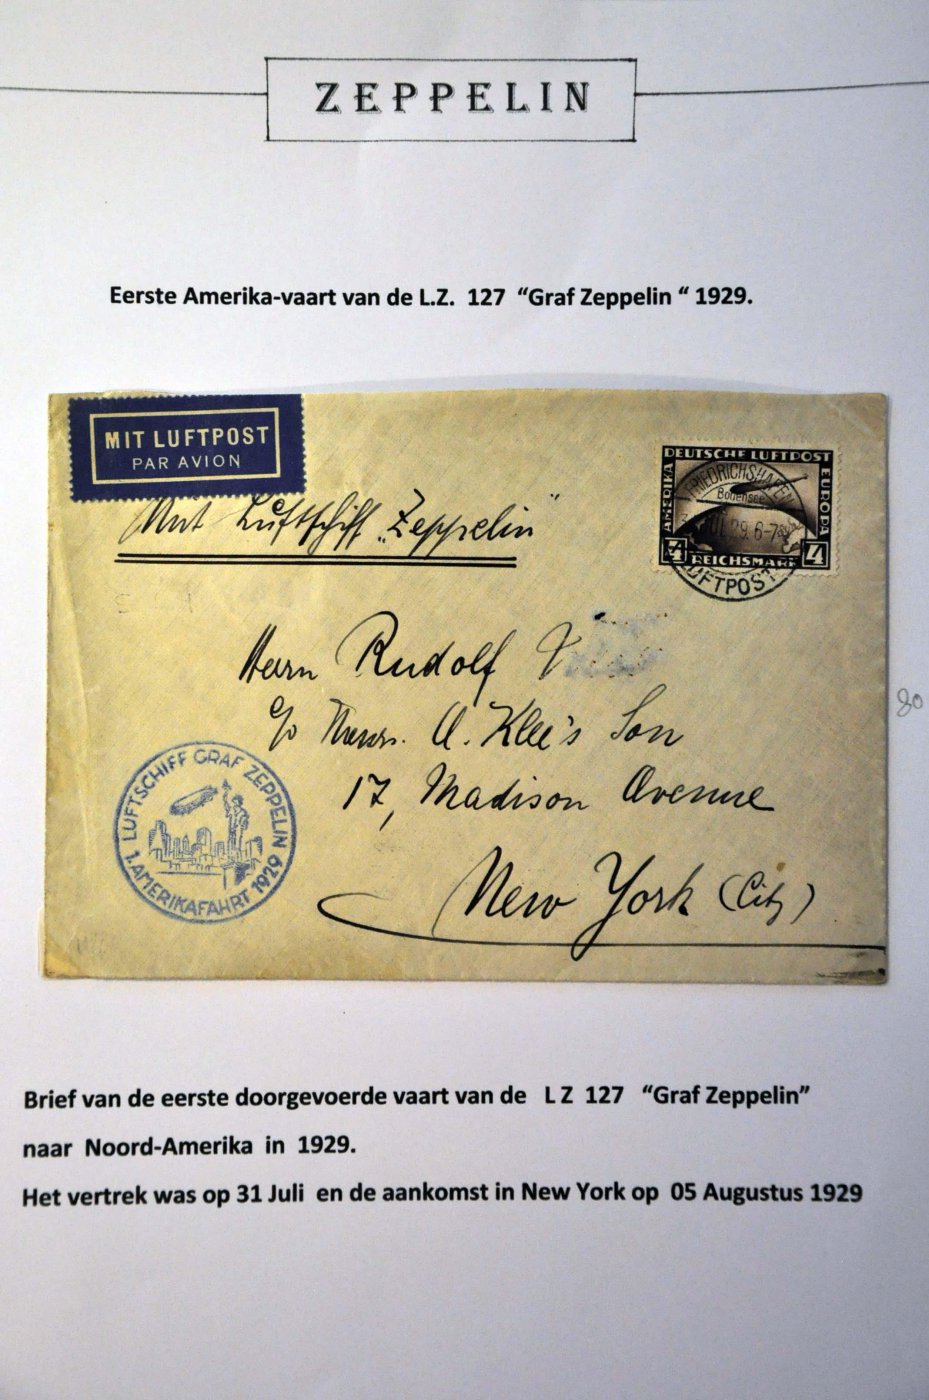 ZEPPELIN
Eerste Amerika-vaart van de L.Z. 127 “Graf Zeppelin “ 1929.
MIT LUFTPOST
PAR AVION
Mit Luftschiff „Zeppelin“
DEUTSCHE LUFTPOST
AMERIKA
EUROPA
4 REICHSMARK 4
FRIEDRICHSHAFEN
Bodensee
JUL 29. 6-7
LUFTPOST
Herrn Rudolf
c/o A. Klee's Son
17, Madison Avenue
New York (City)
LUFTSCHIFF GRAF ZEPPELIN
1. AMERIKAFAHRT 1929
80
Brief van de eerste doorgevoerde vaart van de L Z 127 “Graf Zeppelin”
naar Noord-Amerika in 1929.
Het vertrek was op 31 Juli en de aankomst in New York op 05 Augustus 1929